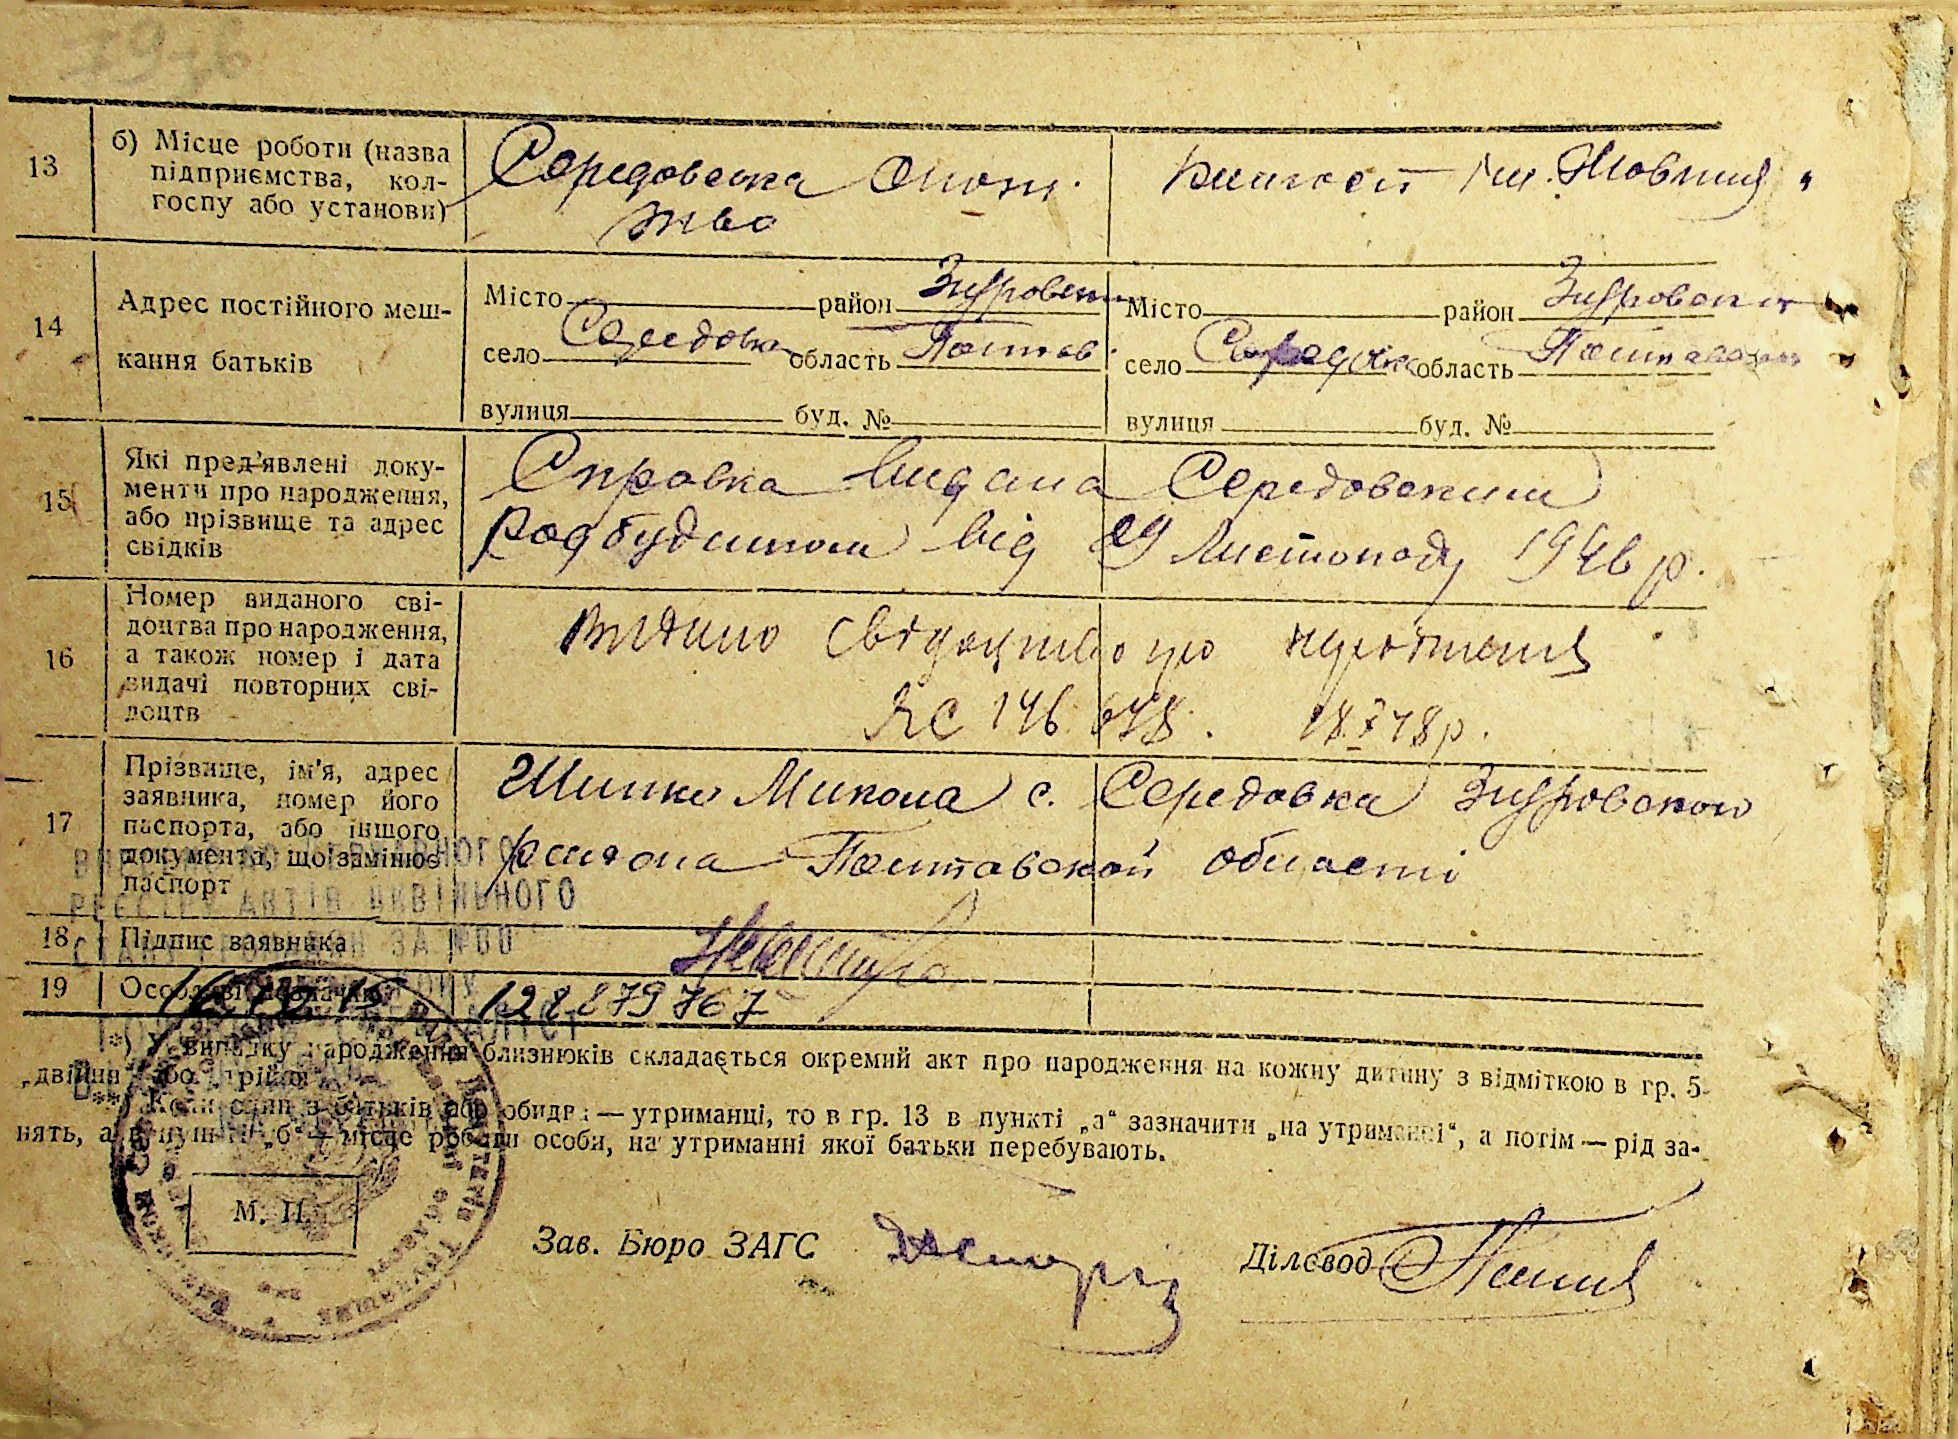 13
б) Місце роботи (назва
підприємства, кол-
госпу або установи)
Середовська Спож.
ство
Колгосп ім. Жовтня
14
Адрес постійного меш-
кання батьків
Місто район Згуровськ
село Середовка область Полтав.
вулиця буд. №
Місто район Згуровский
село Середовка область Полтавськ
вулиця буд. №
15
Які пред'явлені доку-
менти про народження,
або прізвище та адрес
свідків
Справка видана Середовским
родбудинком від 29 листопаду 1946 р.
16
Номер виданого сві-
доцтва про народження,
а також номер і дата
видачі повторних сві-
доцтв
Видано свідоцтво про народження
ЯС 146 648. 18.X 48р.
17
Прізвище, ім'я, адрес
заявника, номер його
паспорта, або іншого
документа, що замінює
паспорт
Микола с. Середовка Згуровского
района Полтавской області
18
Підпис заявника
19
128879767
*) У випадку народження близнюків складається окремий акт про народження на кожну дитину з відміткою в гр. 5
„двійня" або „трійня"
**) Коли один з батьків або обидва — утриманці, то в гр. 13 в пункті „а" зазначити „на утриманні", а потім — рід за-
нять, а в пункті „б" — місце роботи особи, на утриманні якої батьки перебувають.
М. П.
Зав. Бюро ЗАГС
Діловод